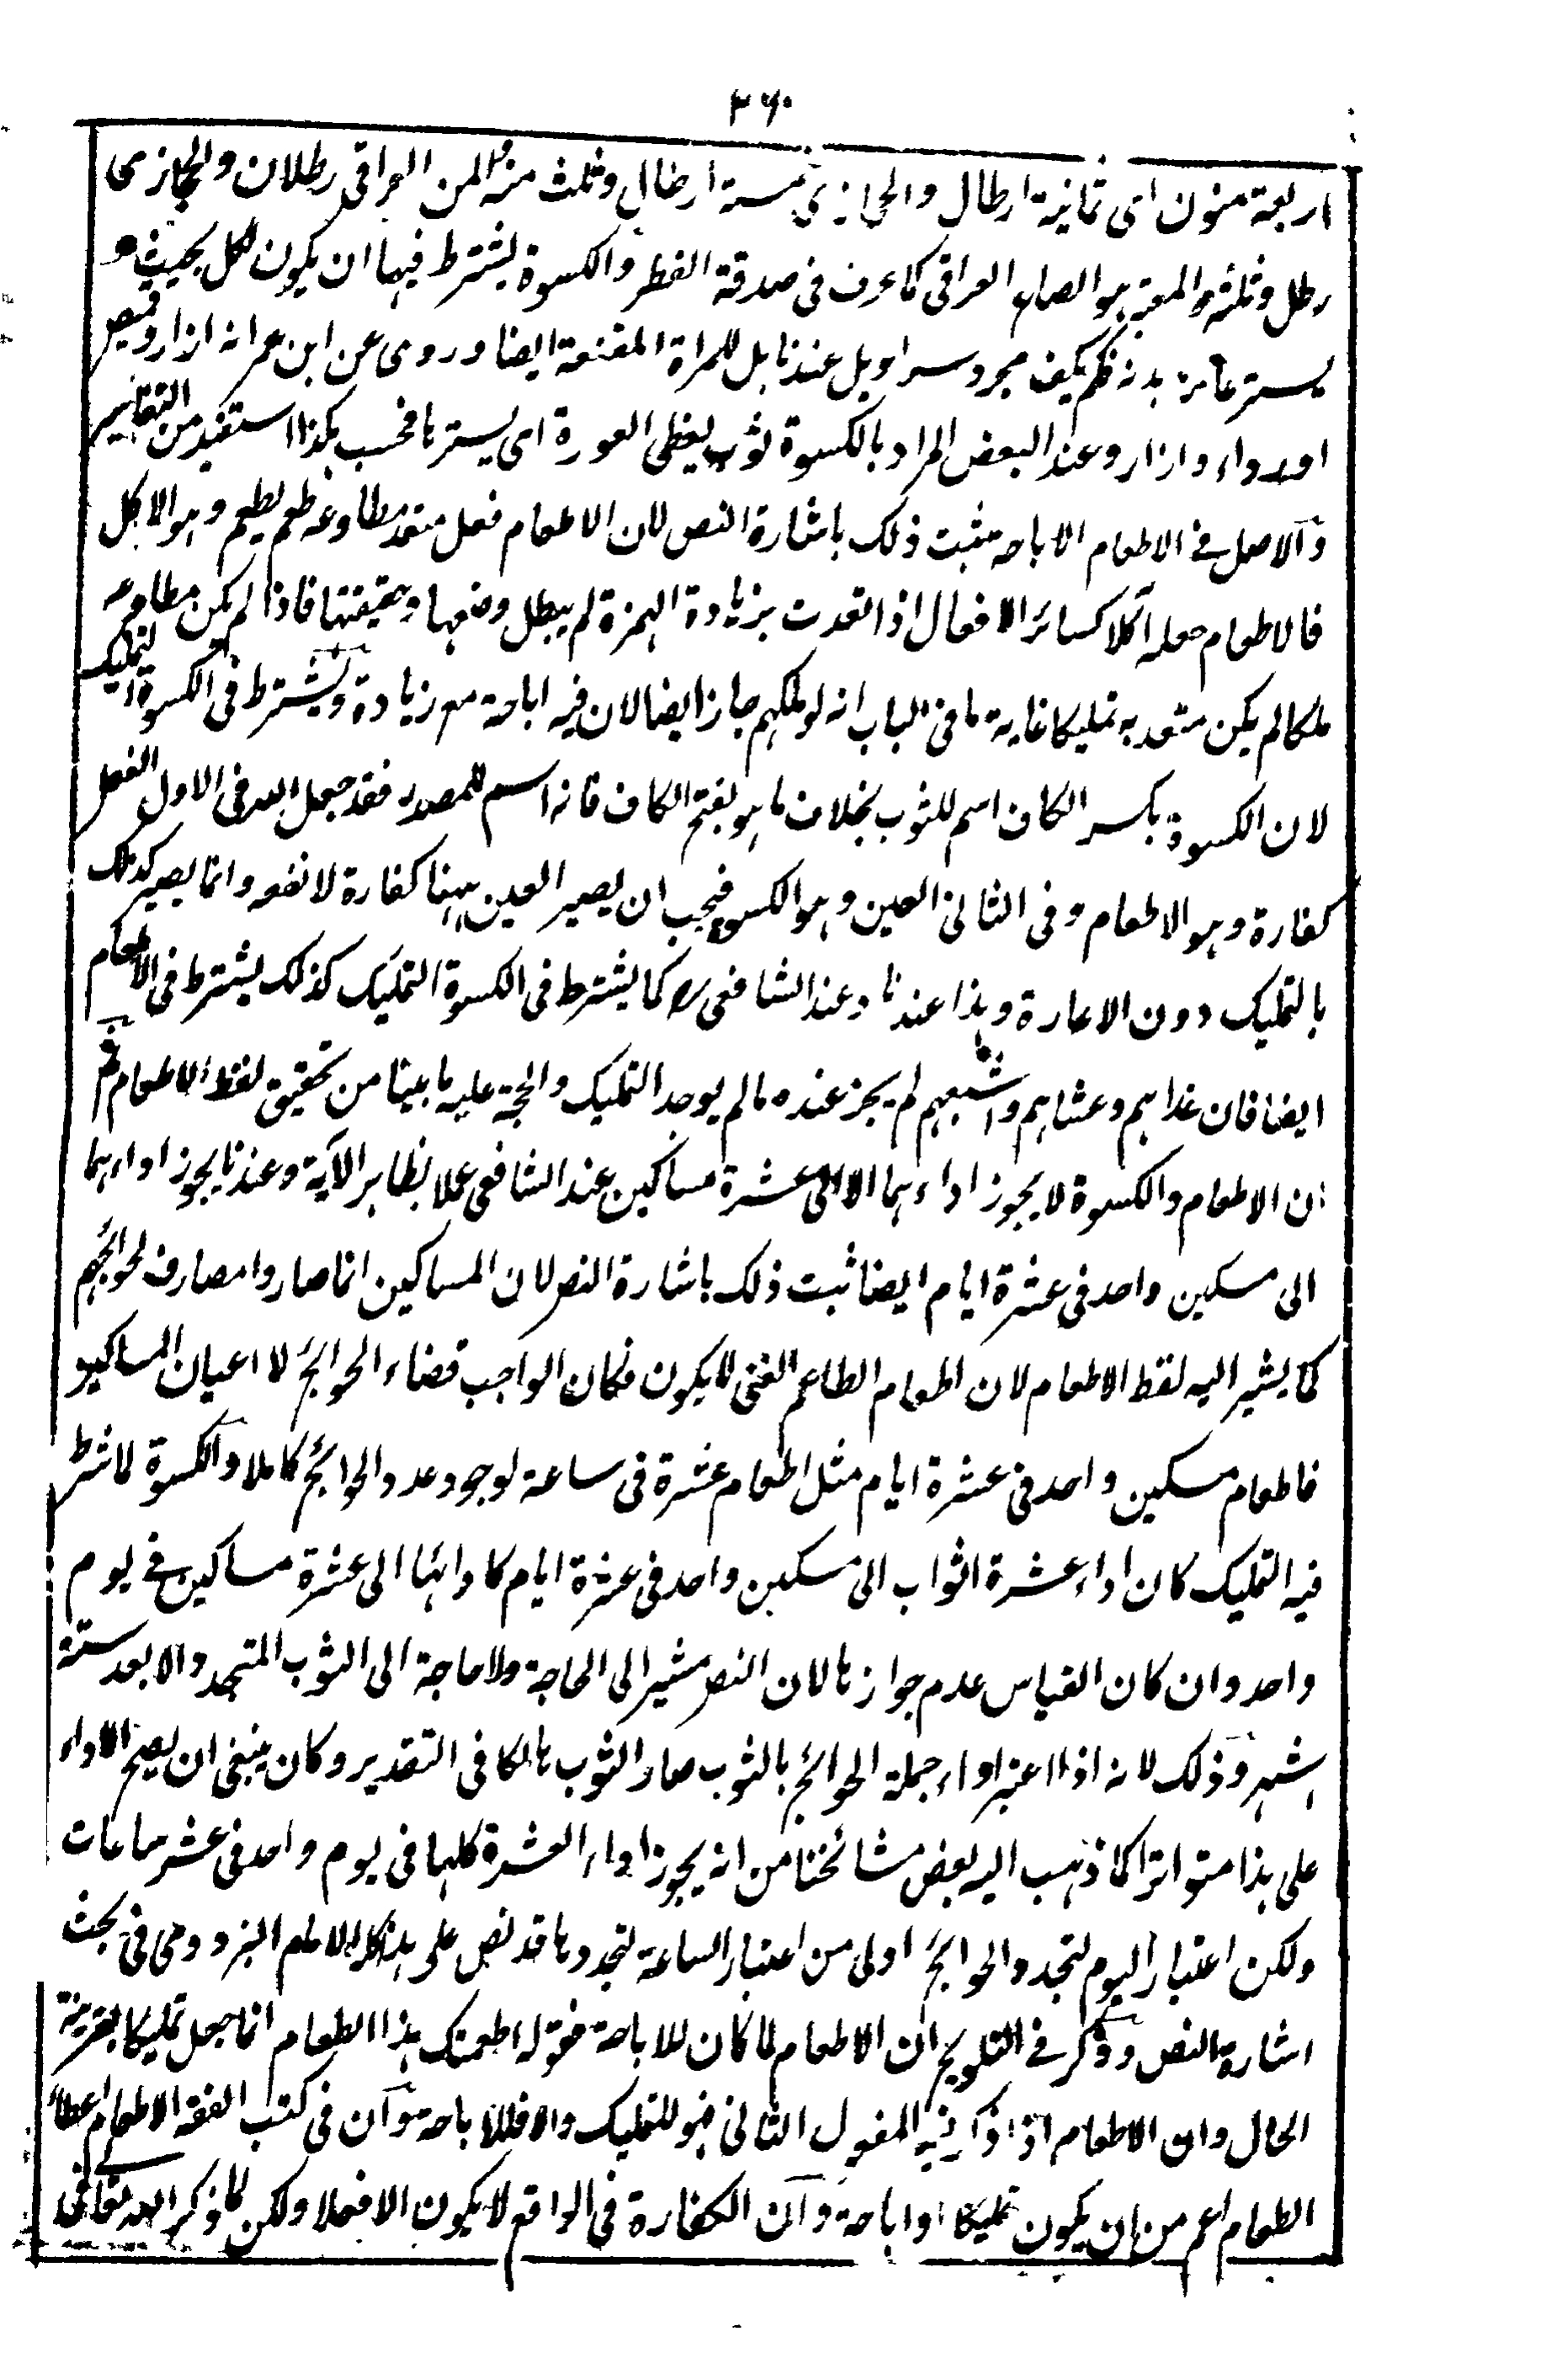 ٣٦٠
اربعة منون اى ثمانية ارطال والحجازى خمسة ارطال وثلث منه المن العراقى رطلان والحجازى
رطل وثلثه والمعتبر هو الصاع العراقى كما عرف فى صدقة الفطر والكسوة يشترط فيها ان يكون لكل بحيث
يستر عامة بدنه فلم يكف مجرد سراويل عندنا بل للمرأة المقنعة ايضا وروى عن ابن عمر انه ازار وقميص
او رداء وازار وعند البعض المراد بالكسوة ثوب يغطى العورة اى يسترها فحسب هكذا استفيد من التفاسير
والاصل فى الاطعام الاباحة مثبت ذلك باشارة النص لان الاطعام فعل متعد مطاوعه طعم يطعم وهو الاكل
فالاطعام جعله آكلا كسائر الافعال اذا تعدت بزيادة الهمزة لم يبطل وضعها وحقيقتها فاذا لم يكن مطاوعه
ملكا لم يكن متعديه تمليكا غاية ما فى الباب انه لو ملكهم جاز ايضا لان فيه اباحة مع زيادة ويشترط فى الكسوة التمليك
لان الكسوة بكسر الكاف اسم للثوب بخلاف ما هو بفتح الكاف فانه اسم للمصدر فقد جعل الله فى الاول الفعل
كفارة وهو الاطعام وفى الثانى العين وهو الكسوة فيجب ان يصير العين ههنا كفارة لا نفعه وانما يصير كذلك
بالتمليك دون الاعارة وهذا عندنا وعند الشافعى رح كما يشترط فى الكسوة التمليك كذلك يشترط فى الاطعام
ايضا فان غداهم وعشاهم واشبعهم لم يجز عنده ما لم يوجد التمليك والحجة عليه ما بينا من تحقيق لفظ الاطعام ثم
ان الاطعام والكسوة لا يجوز اداءهما الا الى عشرة مساكين عند الشافعى عملا بظاهر الآية وعندنا يجوز اداءهما
الى مسكين واحد فى عشرة ايام ايضا ثبت ذلك باشارة النص لان المساكين انما صاروا مصارف لحوائجهم
كما يشير اليه لفظ الاطعام لان اطعام الطاعم الغنى لا يكون فكان الواجب قضاء الحوائج لا اعيان المساكين
فاطعام مسكين واحد فى عشرة ايام مثل اطعام عشرة فى ساعة لوجود عدد الحوائج كاملا والكسوة لما شرط
فيه التمليك كان اداء عشرة اثواب الى مسكين واحد فى عشرة ايام كادائها الى عشرة مساكين فى يوم
واحد وان كان القياس عدم جوازها لان النص مشير الى الحاجة ولا حاجة الى الثوب المتجدد الا بعد ستة
اشهر وذلك لانه اذا اعتبر اداء جملة الحوائج بالثوب صار الثوب هالكا فى التقدير وكان ينبغى ان يصح الاداء
على هذا متواترا كما ذهب اليه بعض مشائخنا من انه يجوز اداء العشرة كلها فى يوم واحد فى عشر ساعات
ولكن اعتبار اليوم لتجدد الحوائج اولى من اعتبار الساعة لتجددها قد نص على هذا كله الامام البزدوى فى بحث
اشارة النص وذكر فى التلويح ان الاطعام لما كان للاباحة فقوله اطعمتك هذا الطعام انما جعل تمليكا بقرينة
الحال وان الاطعام اذا ذكر فيه المفعول الثانى فهو للتمليك والا فللاباحة وان فى كتب الفقه الاطعام اعطاء
الطعام اعم من ان يكون تمليكا او اباحة وان الكفارة فى الواقع لا يكون الا فعلا ولكن لما ذكر الله تعالى فى